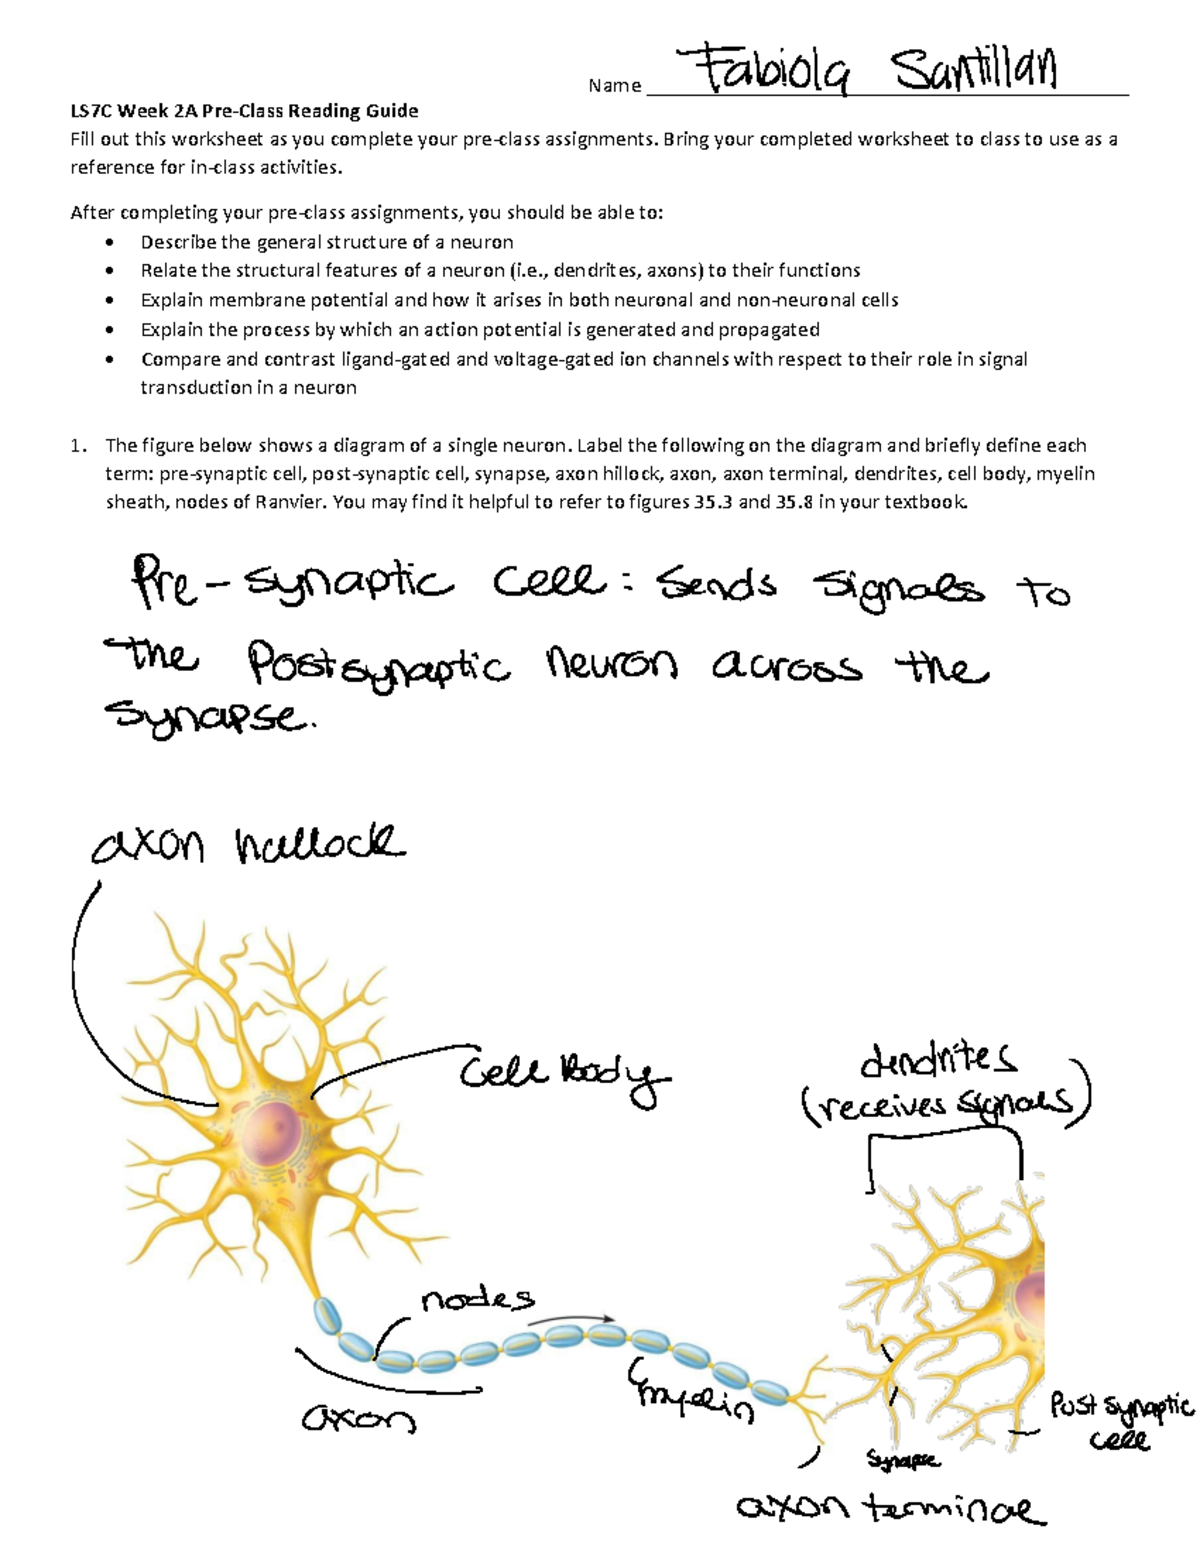 Name Fabiola Santillan
LS7C Week 2A Pre-Class Reading Guide
Fill out this worksheet as you complete your pre-class assignments. Bring your completed worksheet to class to use as a
reference for in-class activities.
After completing your pre-class assignments, you should be able to:
• Describe the general structure of a neuron
• Relate the structural features of a neuron (i.e., dendrites, axons) to their functions
• Explain membrane potential and how it arises in both neuronal and non-neuronal cells
• Explain the process by which an action potential is generated and propagated
• Compare and contrast ligand-gated and voltage-gated ion channels with respect to their role in signal
transduction in a neuron
1. The figure below shows a diagram of a single neuron. Label the following on the diagram and briefly define each
term: pre-synaptic cell, post-synaptic cell, synapse, axon hillock, axon, axon terminal, dendrites, cell body, myelin
sheath, nodes of Ranvier. You may find it helpful to refer to figures 35.3 and 35.8 in your textbook.
Pre-synaptic cell: sends signals to
the Postsynaptic neuron across the
synapse.
axon hillock
cell body
dendrites
(receives signals)
nodes
myelin
axon
Post synaptic
cell
synapse
axon terminal